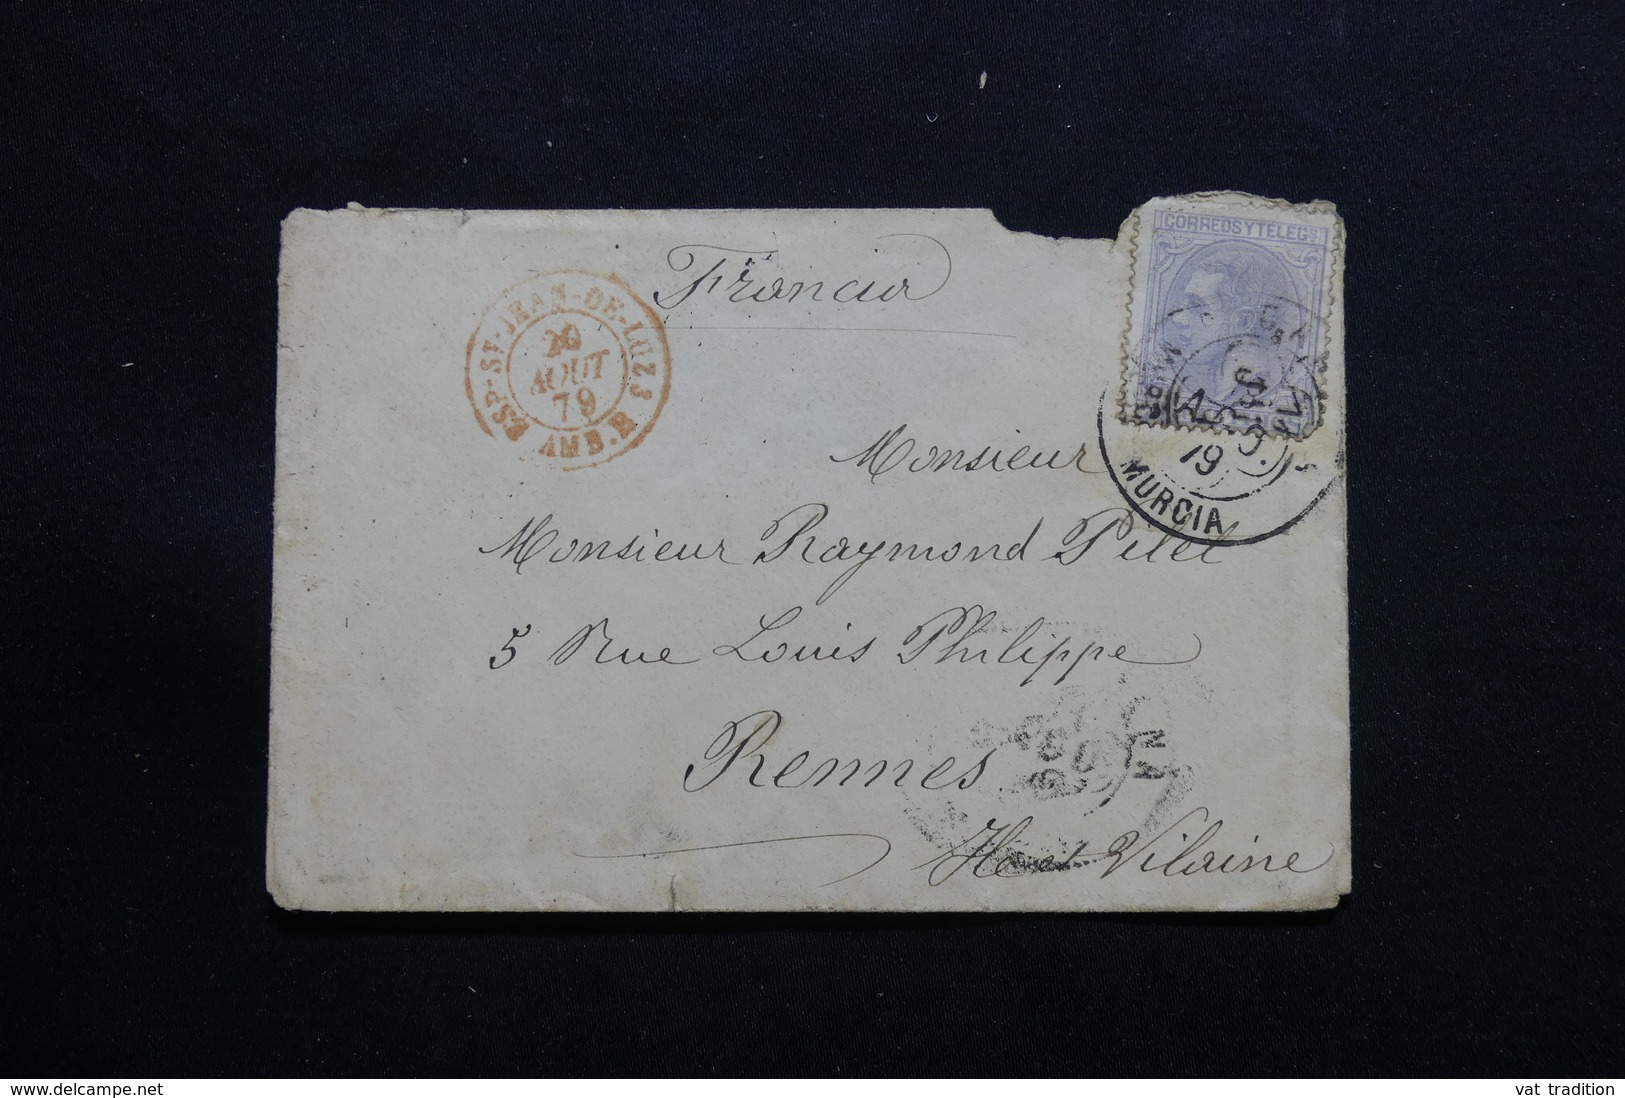 CORREOS Y TELEGS
Francia
ESP. ST-JEAN-DE-LUZ 3
20
AOUT
79
AMB. B
MURCIA
Monsieur
Monsieur Raymond Pelet
5 Rue Louis Philippe
Rennes
Ile et Vilaine
www.delcampe.net
vat_tradition